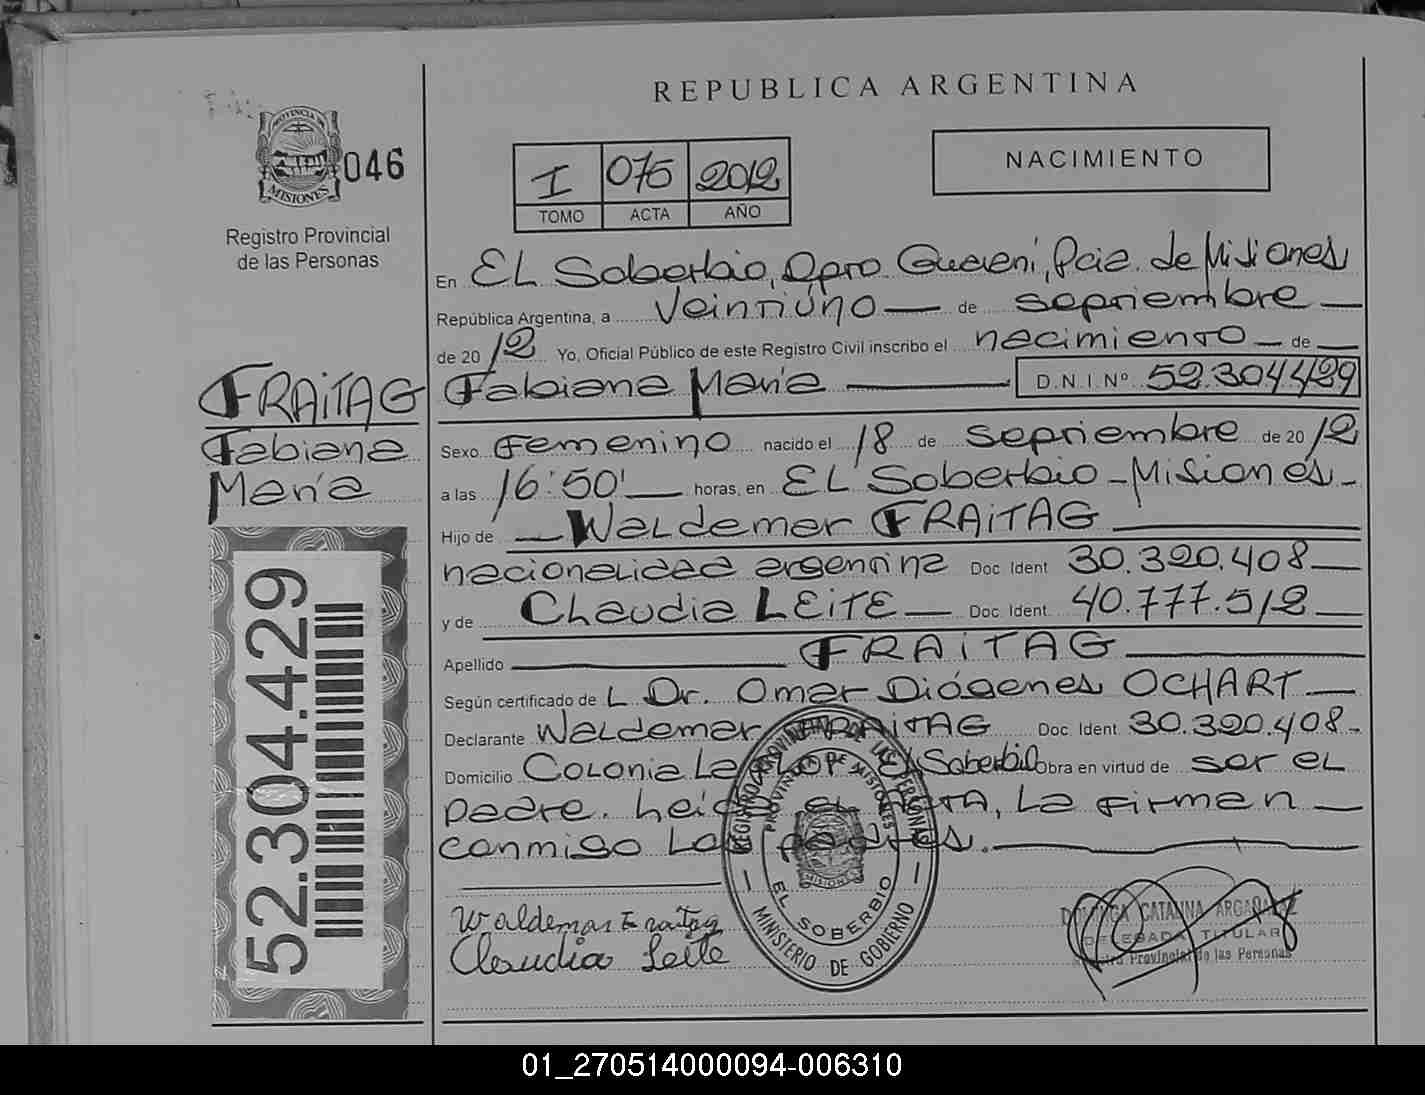 REPUBLICA ARGENTINA
PROVINCIA DE
MISIONES
046
Registro Provincial
de las Personas
I 075 2012
TOMO ACTA AÑO
NACIMIENTO
En EL Soberbio, Dpto Guaraní, Pcia. de Misiones
República Argentina, a Veintiuno de septiembre
de 2012 Yo, Oficial Público de este Registro Civil inscribo el nacimiento de
Fabiana María D.N.I.Nº 52.304.429
FRAiTAG
Fabiana
María
Sexo Femenino nacido el 18 de septiembre de 2012
a las 16:50' horas, en EL Soberbio - Misiones -
Hijo de Waldemar FRAiTAG
nacionalidad argentina Doc Ident 30.320.408
y de Chaudia LEiTE Doc. Ident. 40.777.512
Apellido FRAiTAG
Según certificado de L Dr. Omar Diógenes OCHART
Declarante Waldemar FRAiTAG Doc. Ident. 30.320.408-
Domicilio Colonia La Flor El Soberbio Obra en virtud de ser el
padre. leída el ACTA, la firman
conmigo los padres.
52.304.429
Waldemar Fraitag
Claudia Leite
REGISTRO PROVINCIAL DE LAS PERSONAS
PROVINCIA DE MISIONES
MISIONES
EL SOBERBIO
MINISTERIO DE GOBIERNO
CATALINA
DELEGADA TITULAR
Registro Provincial de las Personas
01_270514000094-006310